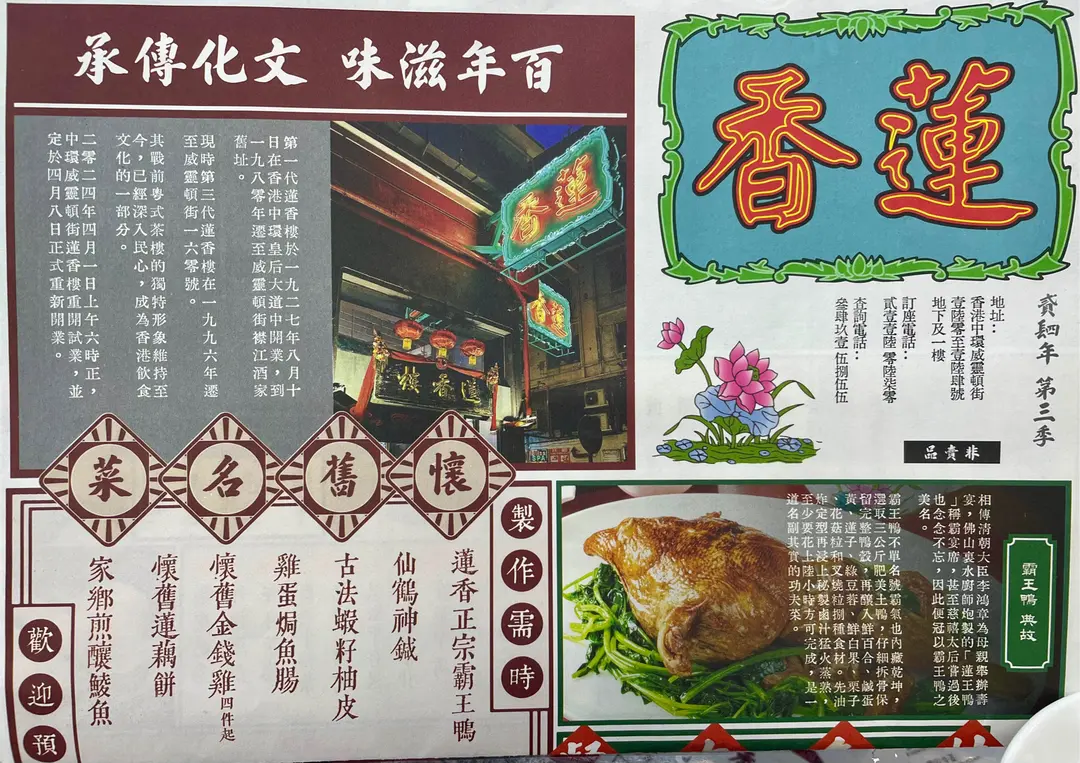 蓮香
年 第三季
地址：
香港中環威靈頓街
壹陸零至壹陸肆號
地下及一樓
訂座電話：
貳壹壹陸 零陸柒零
查詢電話：
叄肆玖壹 伍捌伍伍
非賣品
百年滋味 文化傳承
蓮香
蓮香
蓮香樓
第一代蓮香樓於一九二七年八月十
日在香港中環皇后大道中開業，到
一九八零年遷至威靈頓街襟江酒家
舊址。
現時第三代蓮香樓在一九九六年遷
至威靈頓街一六零號。
其戰前粵式茶樓的獨特形象維持至
今，已經深入民心，成為香港飲食
文化的一部分。
二零二四年四月一日上午六時正，
中環威靈頓街蓮香樓重開試業，並
定於四月八日正式重新開業。
霸王鴨 典故
相傳清朝大臣李鴻章為母親舉辦壽
宴，佛山裏水廚師炮製的「蓮王鴨
」稱霸宴席，甚至慈禧太后嘗過後
也念念不忘，因此便冠以霸王鴨之
美名。
霸王鴨不單名號霸氣也內藏乾坤，
選取三公斤肥美土鴨，仔細拆骨保
留完整鴨殼，再釀入鮮百合、鹹蛋
黃、蓮子、綠豆蓉、鮮白果、栗子
、花菇粒和叉燒粒捌種食材。先油
炸定型再浸上秘製鹵汁猛火蒸熟，
至少要花上陸小時方可完成，是一
道名副其實的功夫菜。
懷舊名菜
製作需時
蓮香正宗霸王鴨
仙鶴神鍼
古法蝦籽柚皮
雞蛋焗魚腸
懷舊金錢雞 四件起
懷舊蓮藕餅
家鄉煎釀鯪魚
歡迎預